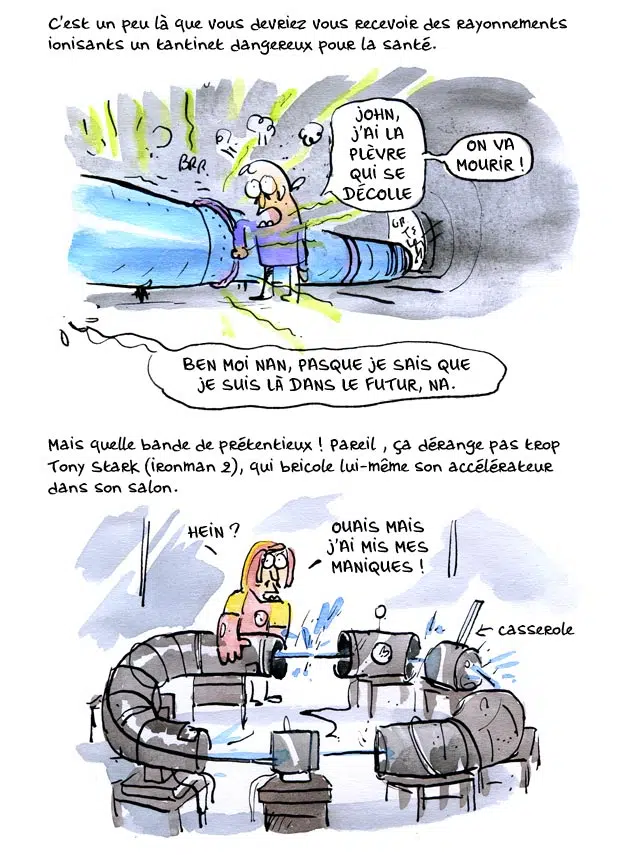 C'est un peu là que vous devriez vous recevoir des rayonnements
ionisants un tantinet dangereux pour la santé.
BRR
JOHN,
J'AI LA
PLÈVRE
QUI SE
DÉCOLLE
ON VA
MOURIR !
BEN MOI NAN, PASQUE JE SAIS QUE
JE SUIS LÀ DANS LE FUTUR, NA.
Mais quelle bande de prétentieux ! Pareil, ça dérange pas trop
Tony Stark (ironman 2), qui bricole lui-même son accélérateur
dans son salon.
HEIN ?
OUAIS MAIS
J'AI MIS MES
MANIQUES !
casserole